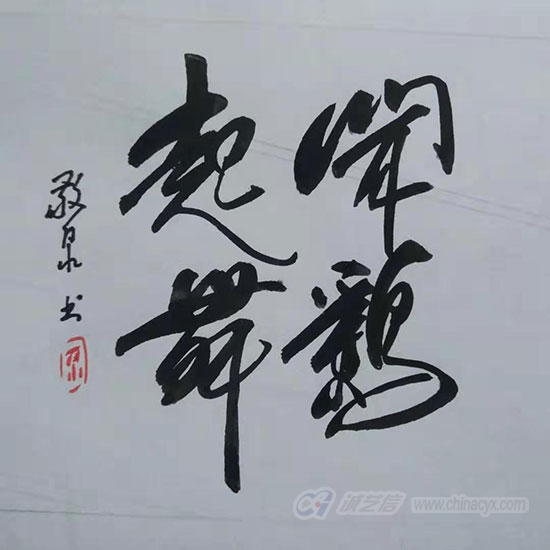 聞鷄
起舞
敬泉书
诚艺信 www.chinacyx.com